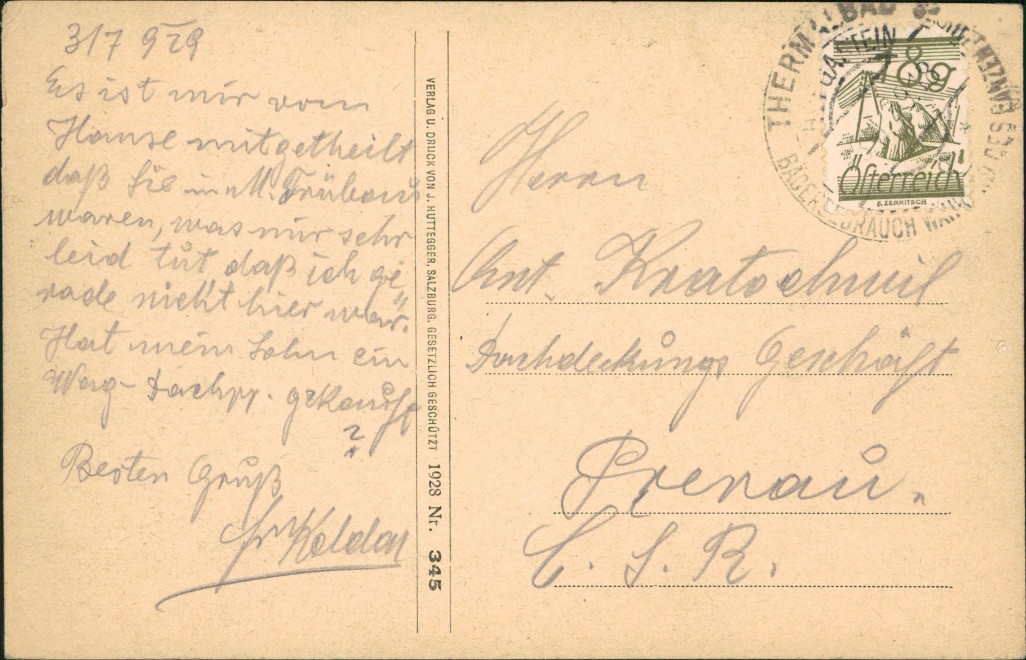 31/7 929
Es ist mir vom
Hause mitgetheilt
daß Sie in M. Trübau
waren, was mir sehr
leid tut daß ich ge
rade nicht hier war.
Hat mein Sohn ein
Wag- Dachpp. gekauft
?
Besten Gruß
VERLAG U. DRUCK VON J. HUTTEGGER, SALZBURG. GESETZLICH GESCHÜTZT 1928 Nr. 345
THERMALBAD
GASTEIN
DES GANZEN
BÄDERGEBRAUCH
8g
Österreich
Herrn
Ant. Kratochwil
Dachdeckungs Geschäft
Prerau.
C. S. R.